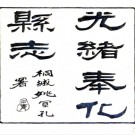 光緒奉化
縣志
桐城姚寅孔
署